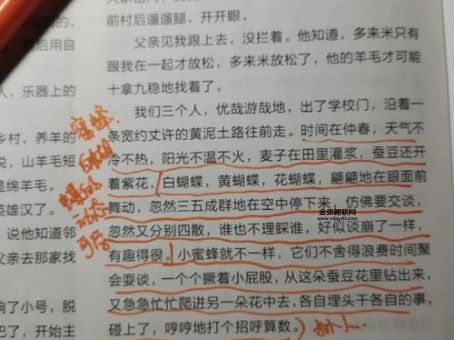 前村后遛遛腿，开开眼。
父亲见我跟上去，没拦着。他知道，多来米只有
跟我在一起才放松，多来米放松了，他的羊毛才可能
十拿九稳地找着了。
我们三个人，优哉游哉地，出了学校门，沿着一
条宽约丈许的黄泥土路往前走。时间在仲春，天气不
冷不热，阳光不温不火，麦子在田里灌浆，蚕豆还开
着紫花，白蝴蝶，黄蝴蝶，花蝴蝶，翩翩地在眼面前
舞动，忽然三五成群地在空中停下来，仿佛要交谈，
忽然又分别四散，谁也不理睬谁，好似谈崩了一样，
有趣得很。小蜜蜂就不一样，它们不舍得浪费时间聚
会耍谈，一个个撅着小屁股，从这朵蚕豆花里钻出来，
又急急忙忙爬进另一朵花中去，各自埋头干各自的事，
碰上了，哼哼地打个招呼算数。
然后用自
人，乐器上的
乡村，养羊的
说，山羊毛短
是绵羊毛。
英雄汉了。
说他知道邻
父亲去那家找
响了小号，脱
巴了，开始主
蜜蜂
蝴蝶
拟人
金泉翻联网